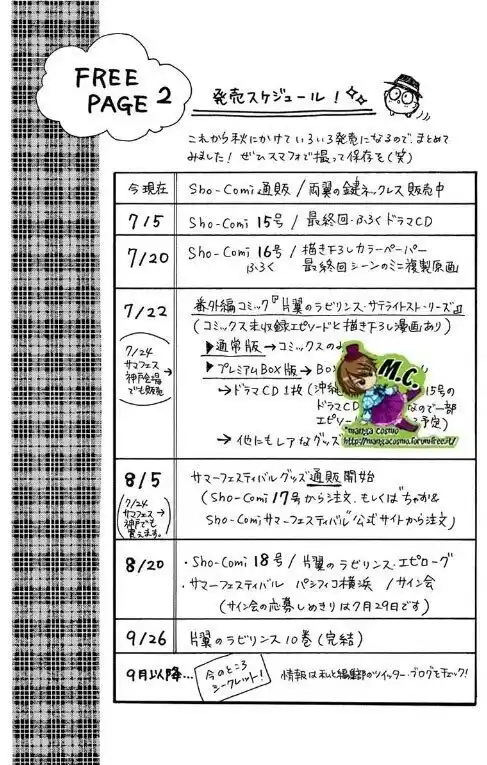 FREE
PAGE 2
発売スケジュール!
これから秋にかけていろいろ発売になるので、まとめて
みました! ぜひスマフォで撮って保存を(笑)
今現在 Sho-Comi 通販 / 両翼の鍵ネックレス 販売中
7/5 Sho-Comi 15号 / 最終回・ふろくドラマCD
7/20 Sho-Comi 16号 / 描き下ろしカラーペーパー
ふろく 最終回シーンのミニ複製原画
7/22 番外編コミック『片翼のラビリンス・サテライトストーリーズ』
(コミックス未収録エピソードと描き下ろし漫画あり)
7/24
サマフェス
神戸会場
でも販売 →
▶通常版→コミックスのみ
▶プレミアムBOX版→
→ドラマCD1枚(沖縄 15号の
ドラマCD なので一部
エピソー 予定)
→他にもレアなグッズ
M.C.
manga cosmo
http://mangacosmo.forumfree.it/
8/5 サマーフェスティバルグッズ通販開始
(Sho-Comi 17号から注文、もしくは"ちゃお&
Sho-Comiサマーフェスティバル"公式サイトから注文)
(7/24
サマフェス→
神戸でも
買えます。)
8/20 ・Sho-Comi 18号 / 片翼のラビリンス・エピローグ
・サマーフェスティバル パシフィコ横浜 / サイン会
(サイン会の応募しめきりは7月29日です)
9/26 片翼のラビリンス10巻(完結)
9月以降… 今のところ
シークレット! 情報は私と編集部のツイッター・ブログをチェック!